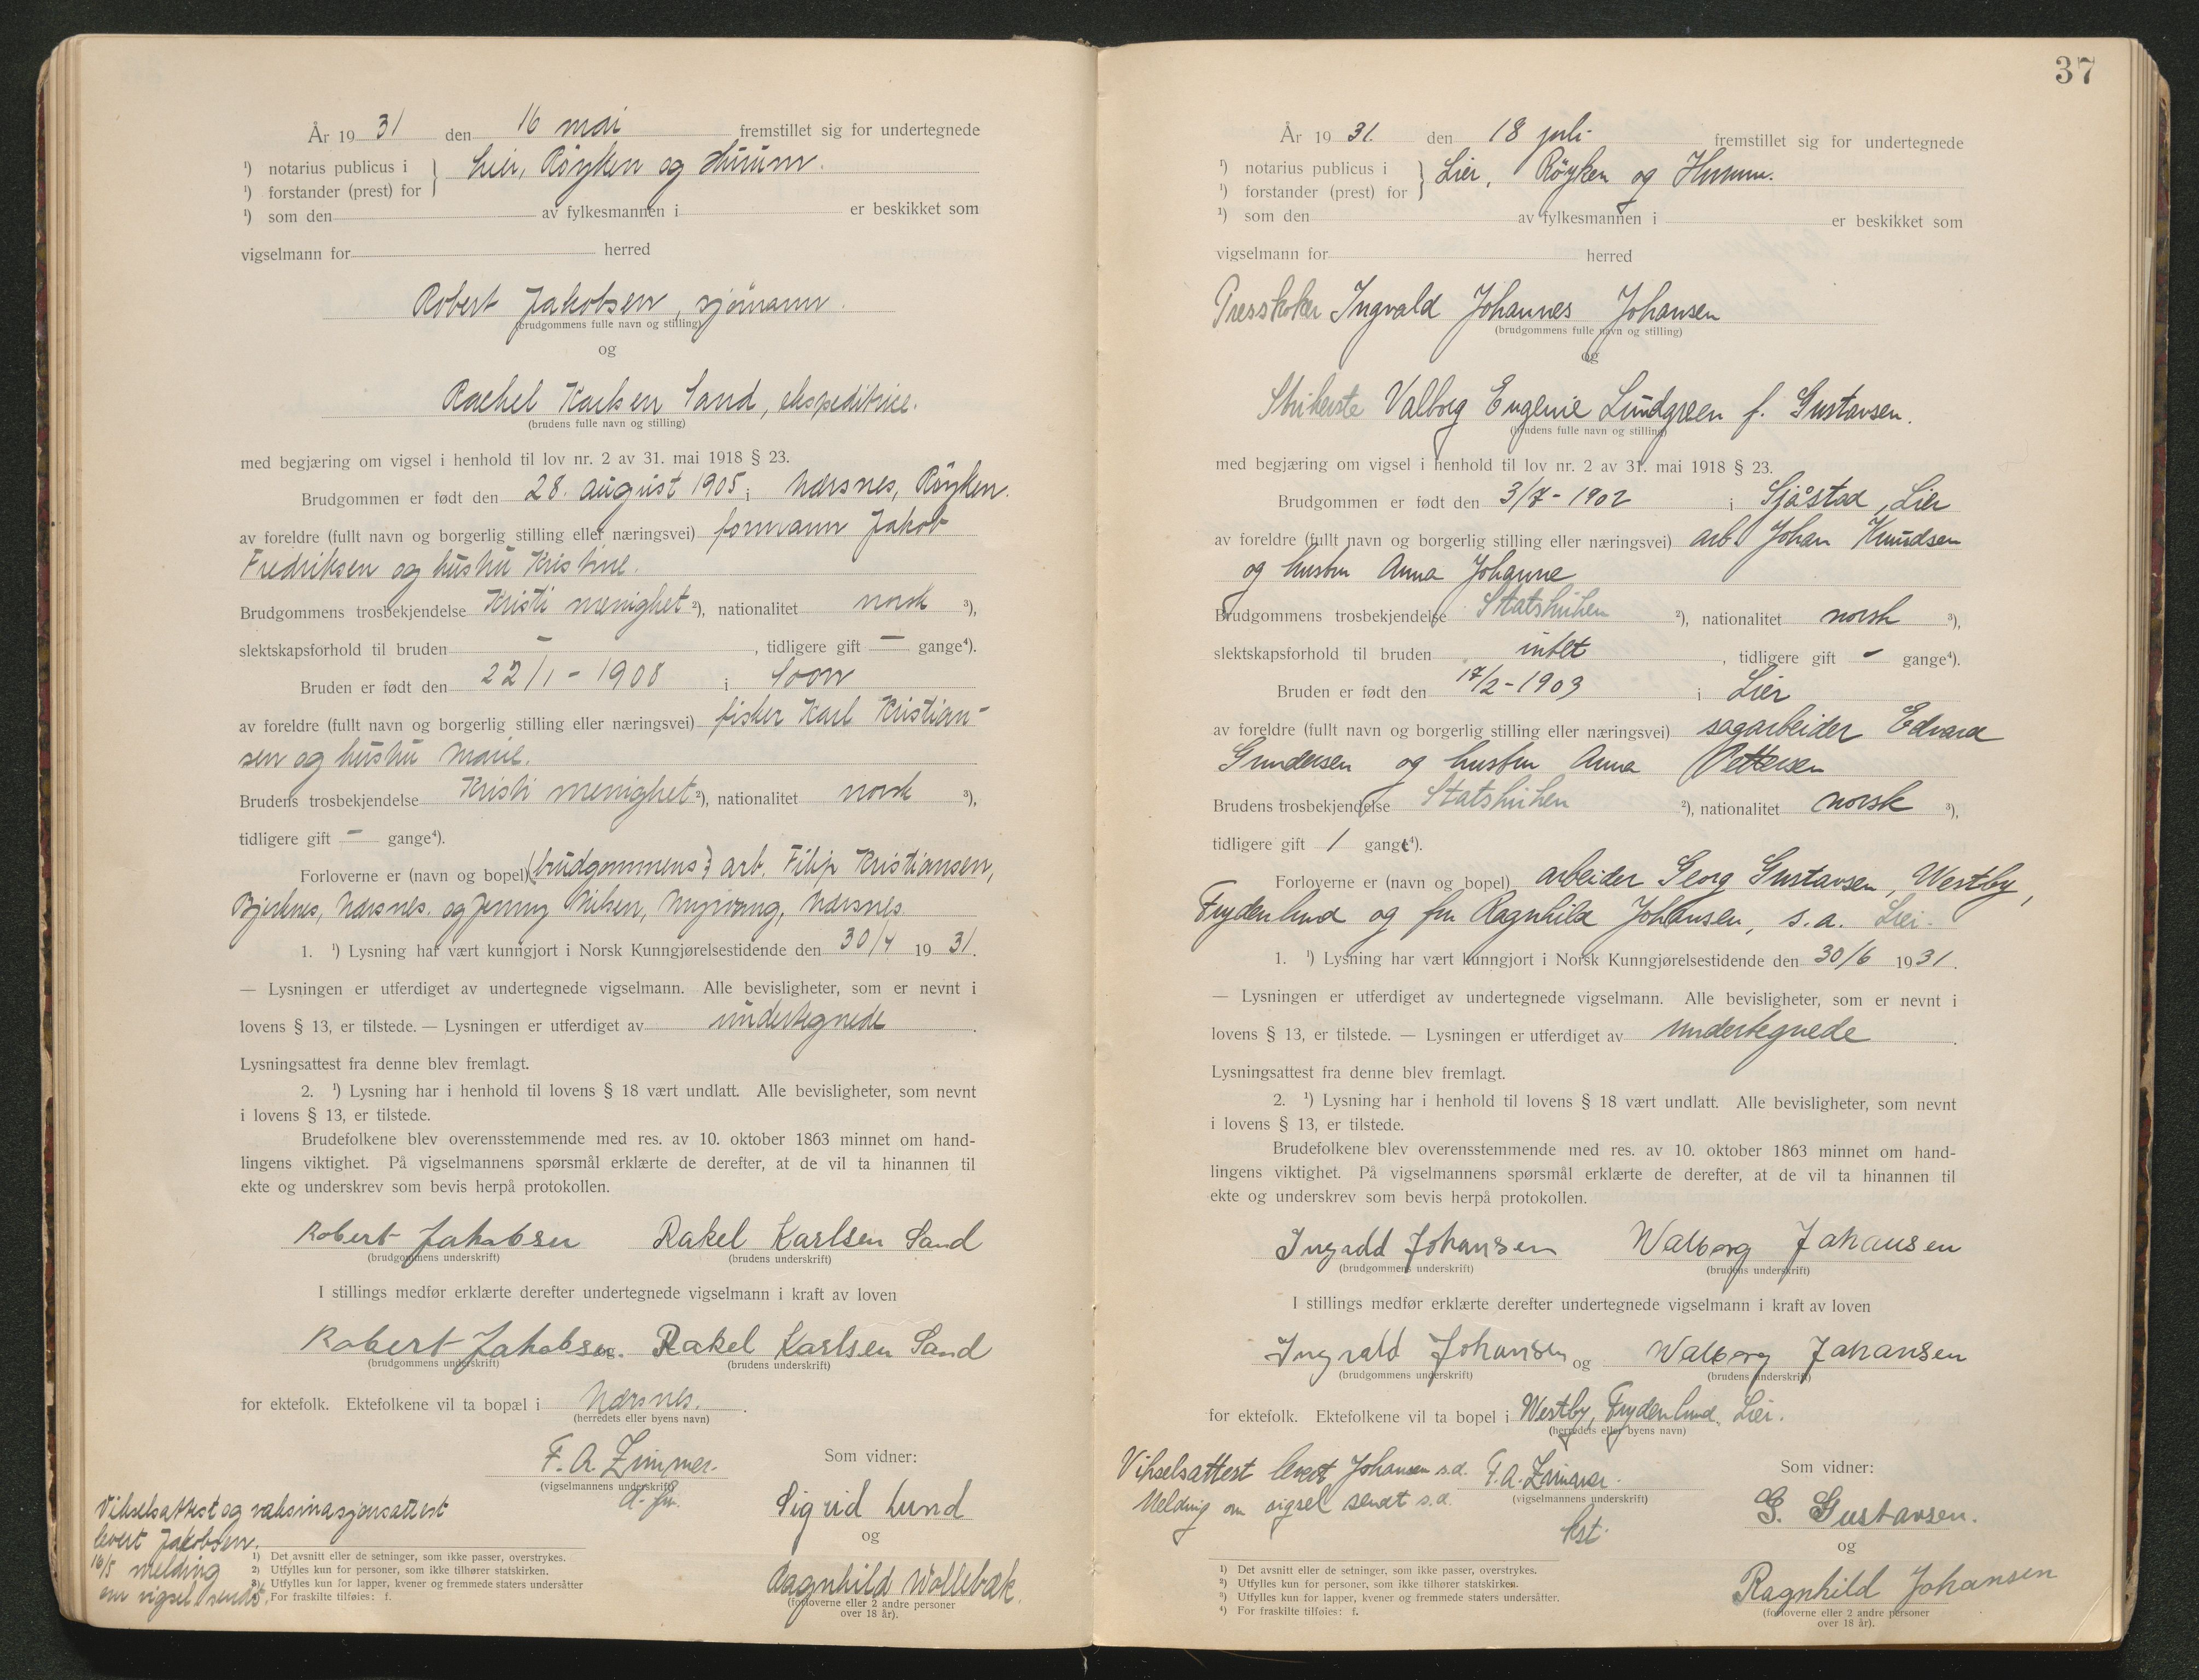 År 19 31 den 16 mai fremstillet sig for undertegnede
¹) notarius publicus i } Lier, Røyken og Hurum.
¹) forstander (prest) for
¹) som den av fylkesmannen i er beskikket som
vigselmann for herred
Robert Jakobsen, sjømann.
(brudgommens fulle navn og stilling)
og
Rachel Karlsen Sand, ekspeditrice.
(brudens fulle navn og stilling)
med begjæring om vigsel i henhold til lov nr. 2 av 31. mai 1918 § 23.
Brudgommen er født den 28. august 1905 i Nærsnes, Røyken.
av foreldre (fullt navn og borgerlig stilling eller næringsvei) formann Jakob
Fredriksen og hustru Kristine.
Brudgommens trosbekjendelse Kristi menighet ²), nationalitet norsk ³),
slektskapsforhold til bruden — , tidligere gift — gange⁴).
Bruden er født den 22/1 - 1908 i Soon
av foreldre (fullt navn og borgerlig stilling eller næringsvei) fisker Karl Kristian-
sen og hustru Marie.
Brudens trosbekjendelse Kristi menighet ²), nationalitet norsk ³),
tidligere gift — gange⁴).
Forloverne er (navn og bopel) (brudgommens:) arb. Filip Kristiansen,
Bjerknes, Nærsnes. og Jenny Nilsen, Myrvang, Nærsnes
1. ¹) Lysning har vært kunngjort i Norsk Kunngjørelsestidende den 30/4 19 31.
— Lysningen er utferdiget av undertegnede vigselmann. Alle bevisligheter, som er nevnt i
lovens § 13, er tilstede. — Lysningen er utferdiget av undertegnede.
Lysningsattest fra denne blev fremlagt.
2. ¹) Lysning har i henhold til lovens § 18 vært undlatt. Alle bevisligheter, som nevnt
i lovens § 13, er tilstede.
Brudefolkene blev overensstemmende med res. av 10. oktober 1863 minnet om hand-
lingens viktighet. På vigselmannens spørsmål erklærte de derefter, at de vil ta hinannen til
ekte og underskrev som bevis herpå protokollen.
Robert Jakobsen Rakel Karlsen Sand
(brudgommens underskrift) (brudens underskrift)
I stillings medfør erklærte derefter undertegnede vigselmann i kraft av loven
Robert Jakobsen. og Rakel Karlsen Sand
(brudgommens underskrift) (brudens underskrift)
for ektefolk. Ektefolkene vil ta bopæl i Nærsnes.
(herredets eller byens navn)
F. A. Zimmer.
(vigselmannens underskrift)
Som vidner:
Sigrid Lund
og
Ragnhild Wollebæk.
(forloverne eller 2 andre personer
over 18 år).
Vikselsattest og vaksinasjonsattest
levert Jakobsen.
16/5 melding
om vigsel sendt.
1) Det avsnitt eller de setninger, som ikke passer, overstrykes.
2) Utfylles kun for personer, som ikke tilhører statskirken.
3) Utfylles kun for lapper, kvener og fremmede staters undersåtter
For fraskilte tilføies: f.
37
År 19 31. den 18 juli fremstillet sig for undertegnede
¹) notarius publicus i } Lier, Røyken og Hurum.
¹) forstander (prest) for
¹) som den av fylkesmannen i er beskikket som
vigselmann for herred
Presskoker Ingvald Johannes Johansen
(brudgommens fulle navn og stilling)
og
Strikerste Valborg Eugenie Lundgreen f. Gustavsen.
(brudens fulle navn og stilling)
med begjæring om vigsel i henhold til lov nr. 2 av 31. mai 1918 § 23.
Brudgommen er født den 3/7 - 1902 i Sjåstad, Lier
av foreldre (fullt navn og borgerlig stilling eller næringsvei) arb. Johan Knudsen
og hustru Anna Johanne
Brudgommens trosbekjendelse Statskirken ²), nationalitet norsk ³),
slektskapsforhold til bruden intet , tidligere gift - gange⁴).
Bruden er født den 17/2 - 1903 i Lier
av foreldre (fullt navn og borgerlig stilling eller næringsvei) sagarbeider Edvard
Gundersen og hustru Anna Pettersen
Brudens trosbekjendelse Statskirken ²), nationalitet norsk ³),
tidligere gift 1 gang⁴).
Forloverne er (navn og bopel) arbeider Georg Gustavsen, Westby,
Frydenlund og fru Ragnhild Johansen, s.a. Lier.
1. ¹) Lysning har vært kunngjort i Norsk Kunngjørelsestidende den 30/6 19 31.
— Lysningen er utferdiget av undertegnede vigselmann. Alle bevisligheter, som er nevnt i
lovens § 13, er tilstede. — Lysningen er utferdiget av undertegnede.
Lysningsattest fra denne blev fremlagt.
2. ¹) Lysning har i henhold til lovens § 18 vært undlatt. Alle bevisligheter, som nevnt
i lovens § 13, er tilstede.
Brudefolkene blev overensstemmende med res. av 10. oktober 1863 minnet om hand-
lingens viktighet. På vigselmannens spørsmål erklærte de derefter, at de vil ta hinannen til
ekte og underskrev som bevis herpå protokollen.
Ingvald Johansen Walborg Johansen
(brudgommens underskrift) (brudens underskrift)
I stillings medfør erklærte derefter undertegnede vigselmann i kraft av loven
Ingvald Johansen og Walborg Johansen
(brudgommens underskrift) (brudens underskrift)
for ektefolk. Ektefolkene vil ta bopel i Westby, Frydenlund, Lier.
(herredets eller byens navn)
Vikselsattest levert Johansen s.d. F. A. Zimmer.
Melding om vigsel sendt s.d. (vigselmannens underskrift)
kst.
Som vidner:
G. Gustavsen.
og
Ragnhild Johansen
(forloverne eller 2 andre personer
over 18 år).
1) Det avsnitt eller de setninger, som ikke passer, overstrykes.
2) Utfylles kun for personer, som ikke tilhører statskirken.
3) Utfylles kun for lapper, kvener og fremmede staters undersåtter.
4) For fraskilte tilføies: f.